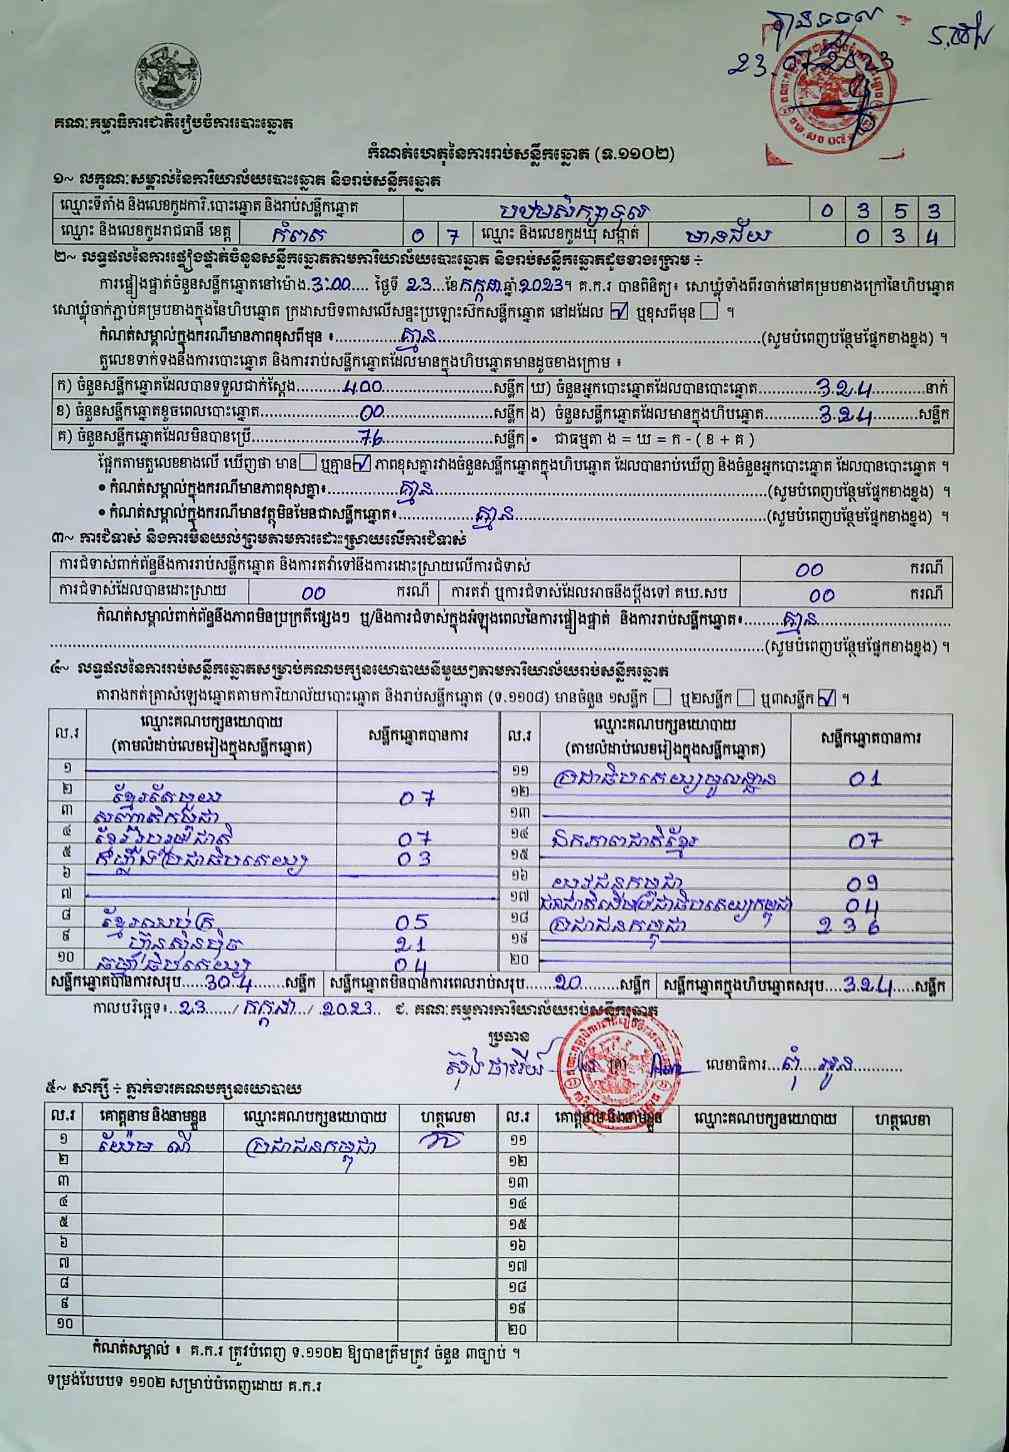 បានទទួល
23.07.2023
គណៈកម្មាធិការជាតិរៀបចំការបោះឆ្នោត
កំណត់ហេតុនៃការរាប់សន្លឹកឆ្នោត (ទ.១១០២)
១~ លក្ខណៈសម្គាល់នៃការិយាល័យបោះឆ្នោត និងរាប់សន្លឹកឆ្នោត
ឈ្មោះទីតាំង និងលេខកូដការិ.បោះឆ្នោត និងរាប់សន្លឹកឆ្នោត បឋមសិក្សាទួល 0 3 5 3
ឈ្មោះ និងលេខកូដរាជធានី ខេត្ត កំពត 0 7 ឈ្មោះ និងលេខកូដឃុំ សង្កាត់ មានជ័យ 0 3 4
២~ លទ្ធផលនៃការផ្ទៀងផ្ទាត់ចំនួនសន្លឹកឆ្នោតតាមការិយាល័យបោះឆ្នោត និងរាប់សន្លឹកឆ្នោតដូចខាងក្រោម ÷
ការផ្ទៀងផ្ទាត់ចំនួនសន្លឹកឆ្នោតនៅម៉ោង.3:00.... ថ្ងៃទី 23...ខែកក្កដា.ឆ្នាំ2023។ គ.ក.រ បានពិនិត្យ៖ សោឃ្លុំទាំងពីរចាក់នៅគម្របខាងក្រៅនៃហិបឆ្នោត
សោឃ្លុំចាក់ភ្ជាប់គម្របខាងក្នុងនៃហិបឆ្នោត ក្រដាសបិទពាសលើសន្ទះប្រឡោះស៊កសន្លឹកឆ្នោត នៅដដែល ☑ ឬខុសពីមុន ☐ ។
កំណត់សម្គាល់ក្នុងករណីមានភាពខុសពីមុន ៖ គ្មាន (សូមបំពេញបន្ថែមផ្នែកខាងខ្នង) ។
តួលេខទាក់ទងនឹងការបោះឆ្នោត និងការរាប់សន្លឹកឆ្នោតដែលមានក្នុងហិបឆ្នោតមានដូចខាងក្រោម ៖
ក) ចំនួនសន្លឹកឆ្នោតដែលបានទទួលជាក់ស្តែង 400 សន្លឹក ឃ) ចំនួនអ្នកបោះឆ្នោតដែលបានបោះឆ្នោត 324 នាក់
ខ) ចំនួនសន្លឹកឆ្នោតខូចពេលបោះឆ្នោត 00 សន្លឹក ង) ចំនួនសន្លឹកឆ្នោតដែលមានក្នុងហិបឆ្នោត 324 សន្លឹក
គ) ចំនួនសន្លឹកឆ្នោតដែលមិនបានប្រើ 76 សន្លឹក • ជាធម្មតា ង = ឃ = ក - ( ខ + គ )
ផ្អែកតាមតួលេខខាងលើ ឃើញថា មាន☐ ឬគ្មាន☑ ភាពខុសគ្នារវាងចំនួនសន្លឹកឆ្នោតក្នុងហិបឆ្នោត ដែលបានរាប់ឃើញ និងចំនួនអ្នកបោះឆ្នោត ដែលបានបោះឆ្នោត ។
• កំណត់សម្គាល់ក្នុងករណីមានភាពខុសគ្នា៖ គ្មាន (សូមបំពេញបន្ថែមផ្នែកខាងខ្នង) ។
• កំណត់សម្គាល់ក្នុងករណីមានវត្ថុមិនមែនជាសន្លឹកឆ្នោត៖ គ្មាន (សូមបំពេញបន្ថែមផ្នែកខាងខ្នង) ។
៣~ ការជំទាស់ និងការមិនយល់ព្រមតាមការដោះស្រាយលើការជំទាស់
ការជំទាស់ពាក់ព័ន្ធនឹងការរាប់សន្លឹកឆ្នោត និងការតវ៉ាទៅនឹងការដោះស្រាយលើការជំទាស់ 00 ករណី
ការជំទាស់ដែលបានដោះស្រាយ 00 ករណី ការតវ៉ា ឬការជំទាស់ដែលអាចនឹងប្តឹងទៅ គឃ.សប 00 ករណី
កំណត់សម្គាល់ពាក់ព័ន្ធនឹងភាពមិនប្រក្រតីផ្សេងៗ ឬ/និងការជំទាស់ក្នុងអំឡុងពេលនៃការផ្ទៀងផ្ទាត់ និងការរាប់សន្លឹកឆ្នោត៖ គ្មាន
(សូមបំពេញបន្ថែមផ្នែកខាងខ្នង) ។
៤~ លទ្ធផលនៃការរាប់សន្លឹកឆ្នោតសម្រាប់គណបក្សនយោបាយនីមួយៗតាមការិយាល័យរាប់សន្លឹកឆ្នោត
តារាងកត់ត្រាសំឡេងឆ្នោតតាមការិយាល័យបោះឆ្នោត និងរាប់សន្លឹកឆ្នោត (ទ.១១០៨) មានចំនួន ១សន្លឹក ☐ ឬ២សន្លឹក ☐ ឬ៣សន្លឹក ☑ ។
ល.រ ឈ្មោះគណបក្សនយោបាយ (តាមលំដាប់លេខរៀងក្នុងសន្លឹកឆ្នោត) សន្លឹកឆ្នោតបានការ ល.រ ឈ្មោះគណបក្សនយោបាយ (តាមលំដាប់លេខរៀងក្នុងសន្លឹកឆ្នោត) សន្លឹកឆ្នោតបានការ
១ ១១ ប្រជាធិបតេយ្យមូលដ្ឋាន 01
២ ខ្មែរតែមួយ 07 ១២
៣ សញ្ជាតិកម្ពុជា ១៣
៤ ខ្មែររួបរួមជាតិ 07 ១៤ ឯកភាពជាតិខ្មែរ 07
៥ កម្លាំងប្រជាធិបតេយ្យ 03 ១៥
៦ ១៦ យុវជនកម្ពុជា 09
៧ ១៧ ជនជាតិដើមប្រជាធិបតេយ្យកម្ពុជា 04
៨ ខ្មែរឈប់ក្រ 05 ១៨ ប្រជាជនកម្ពុជា 236
៩ ហ្វ៊ុនស៊ិនប៉ិច 21 ១៩
១០ ធម្មាធិបតេយ្យ 04 ២០
សន្លឹកឆ្នោតបានការសរុប 304 សន្លឹក សន្លឹកឆ្នោតមិនបានការពេលរាប់សរុប 20 សន្លឹក សន្លឹកឆ្នោតក្នុងហិបឆ្នោតសរុប 324 សន្លឹក
កាលបរិច្ឆេទ៖ 23 / កក្កដា / 2023 ជ. គណៈកម្មការការិយាល័យរាប់សន្លឹកឆ្នោត
ប្រធាន
លេខាធិការ
៥~ សាក្សី ÷ ភ្នាក់ងារគណបក្សនយោបាយ
ល.រ គោត្តនាម និងនាមខ្លួន ឈ្មោះគណបក្សនយោបាយ ហត្ថលេខា ល.រ គោត្តនាម និងនាមខ្លួន ឈ្មោះគណបក្សនយោបាយ ហត្ថលេខា
១ យ៉ែម ណី ប្រជាជនកម្ពុជា ១១
២ ១២
៣ ១៣
៤ ១៤
៥ ១៥
៦ ១៦
៧ ១៧
៨ ១៨
៩ ១៩
១០ ២០
កំណត់សម្គាល់ ៖ គ.ក.រ ត្រូវបំពេញ ទ.១១០២ ឱ្យបានត្រឹមត្រូវ ចំនួន ៣ច្បាប់ ។
ទម្រង់បែបបទ ១១០២ សម្រាប់បំពេញដោយ គ.ក.រ